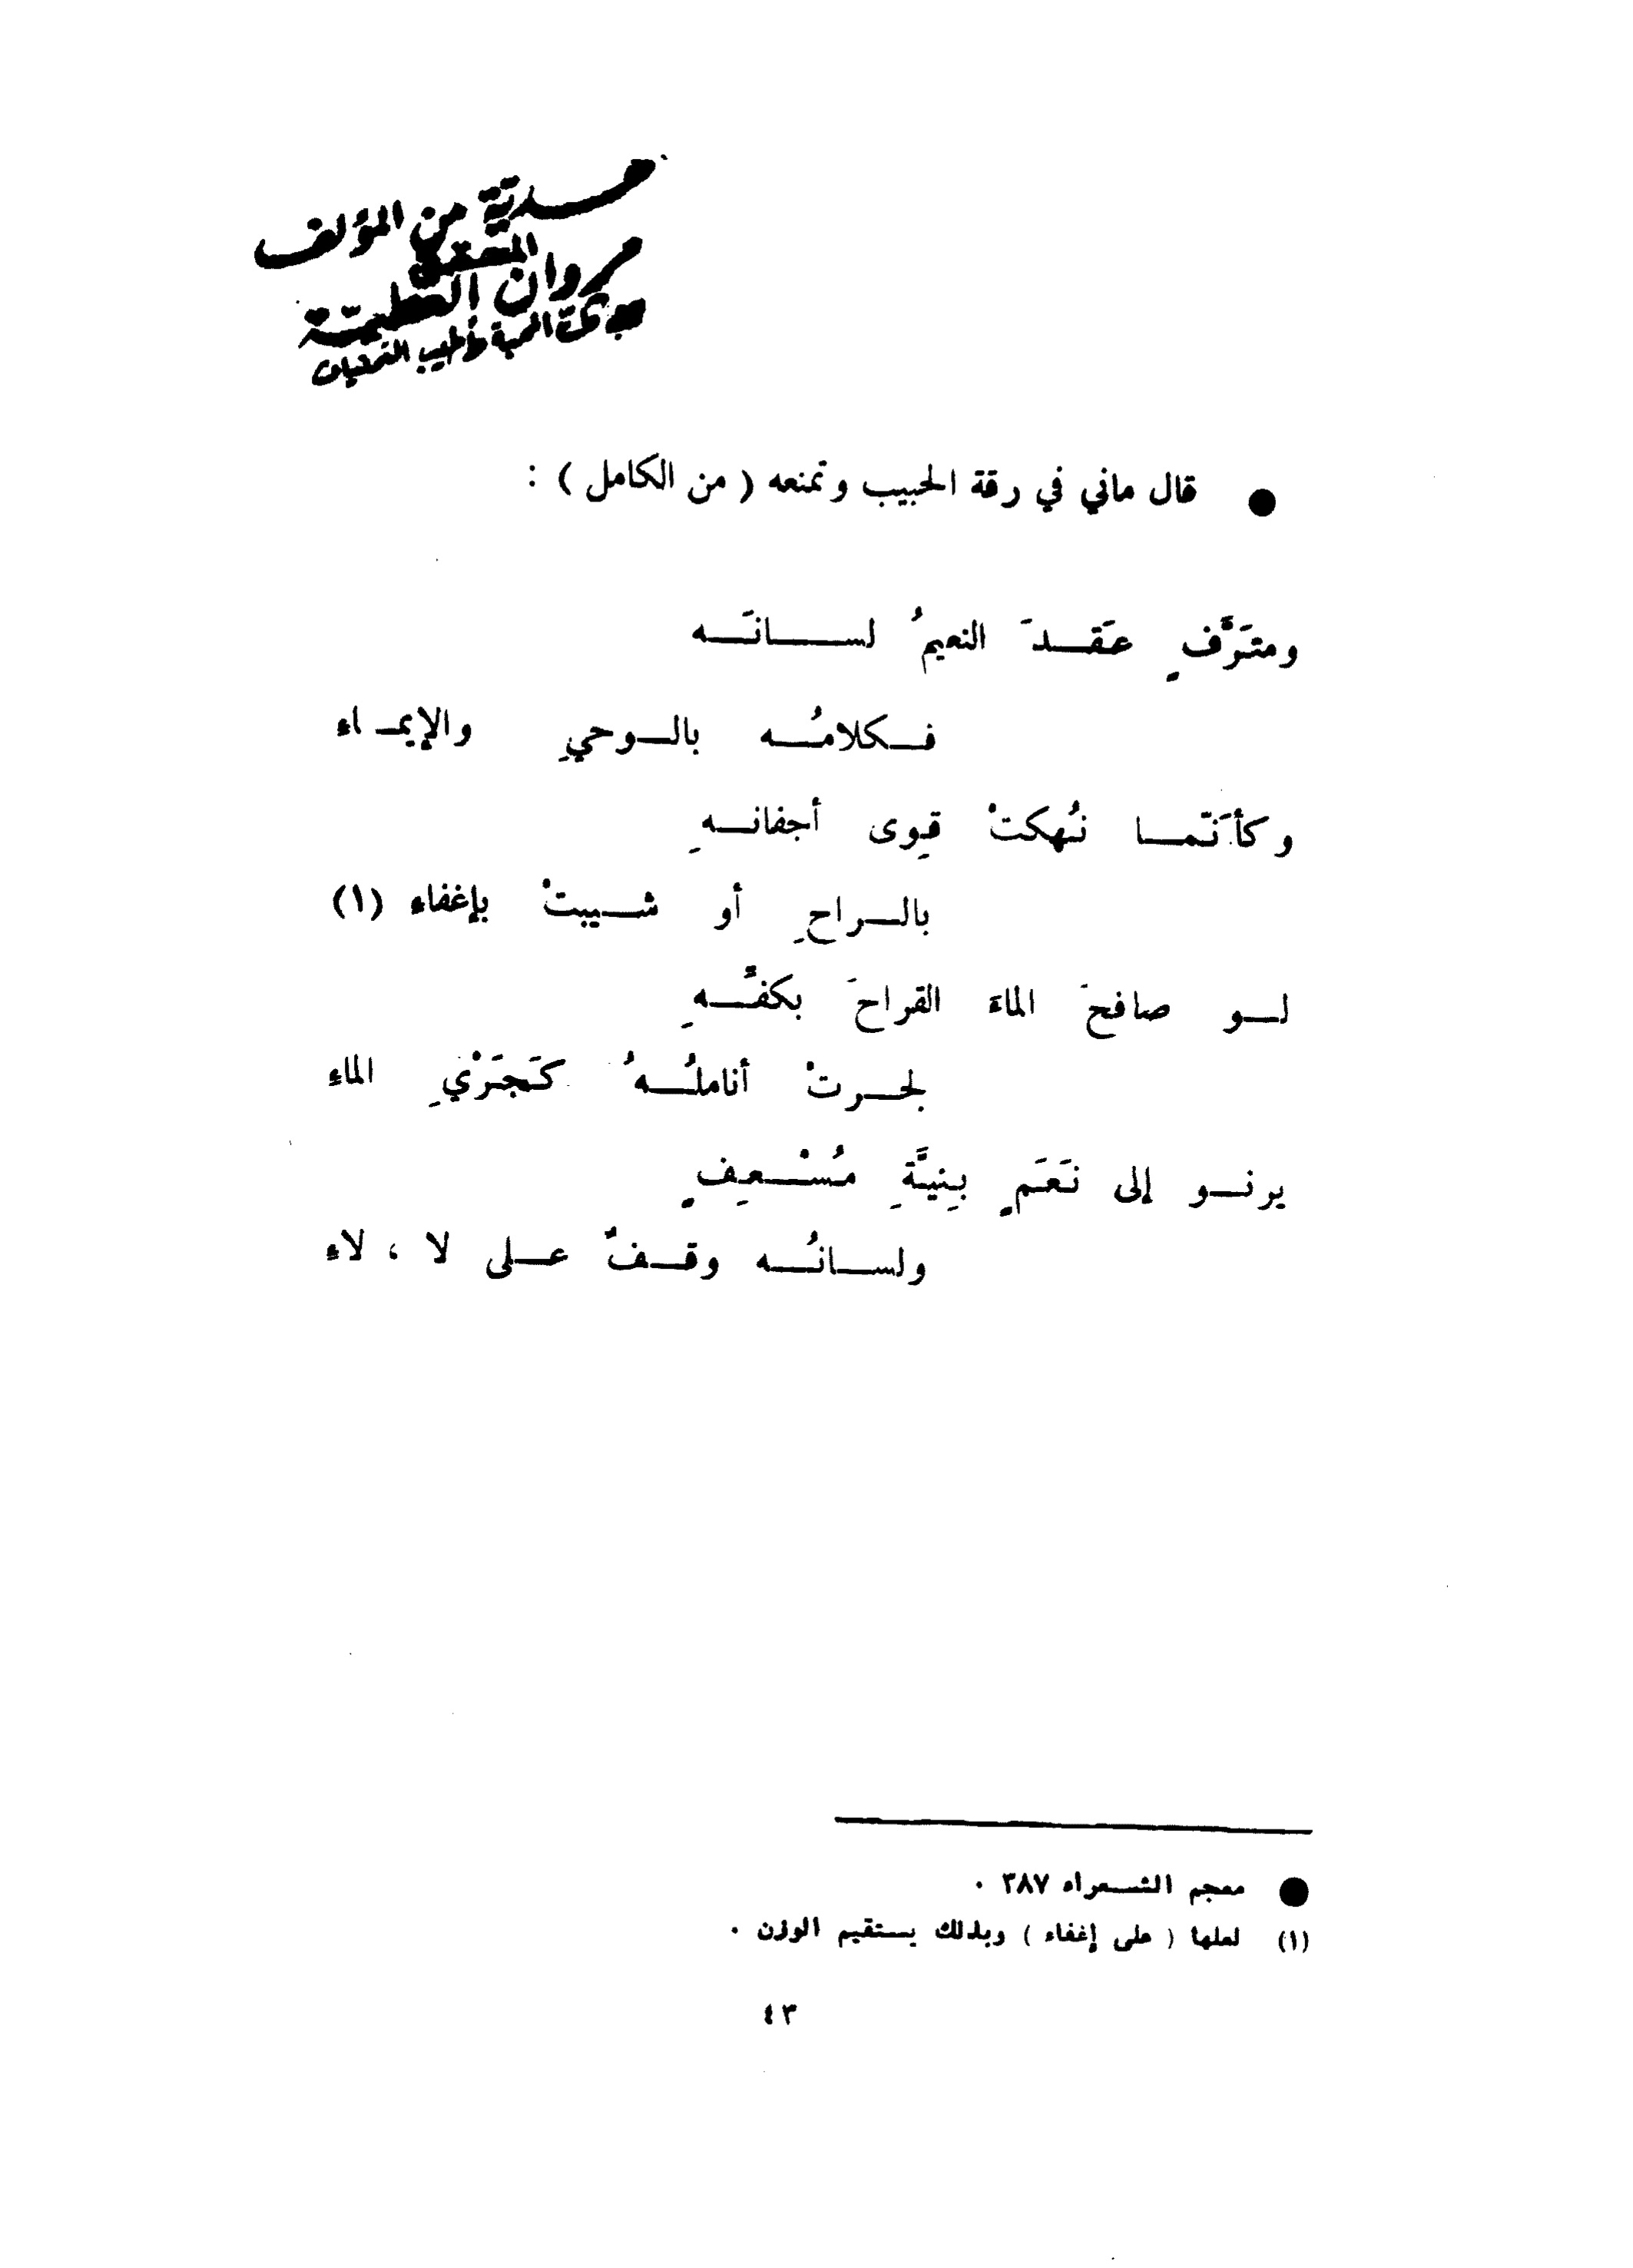 هدية من المؤلف
مروان العطية
مع تحية المحبة وأطيب التمنيات
● قال ماني في رقة الحبيب وتمنعه ( من الكامل ) :
ومترَّفٍ عقدَ النعيمُ لسانَه
فكلامُه بالوحيِ والإيماء
وكأنّما نُهكتْ قِوى أجفانهِ
بالراحِ أو شيبتْ بإغفاء (١)
لو صافحَ الماءَ القراحَ بكفِّهِ
لجرتْ أناملُهُ كَجَرْيِ الماءِ
يرنو إلى نَعَمٍ بِنيَّةِ مُسْعِفٍ
ولسانُه وقفٌ على لا ، لاءِ
● معجم الشعراء ٣٨٧ .
(١) لعلها ( على إغفاء ) وبذلك يستقيم الوزن .
٤٣